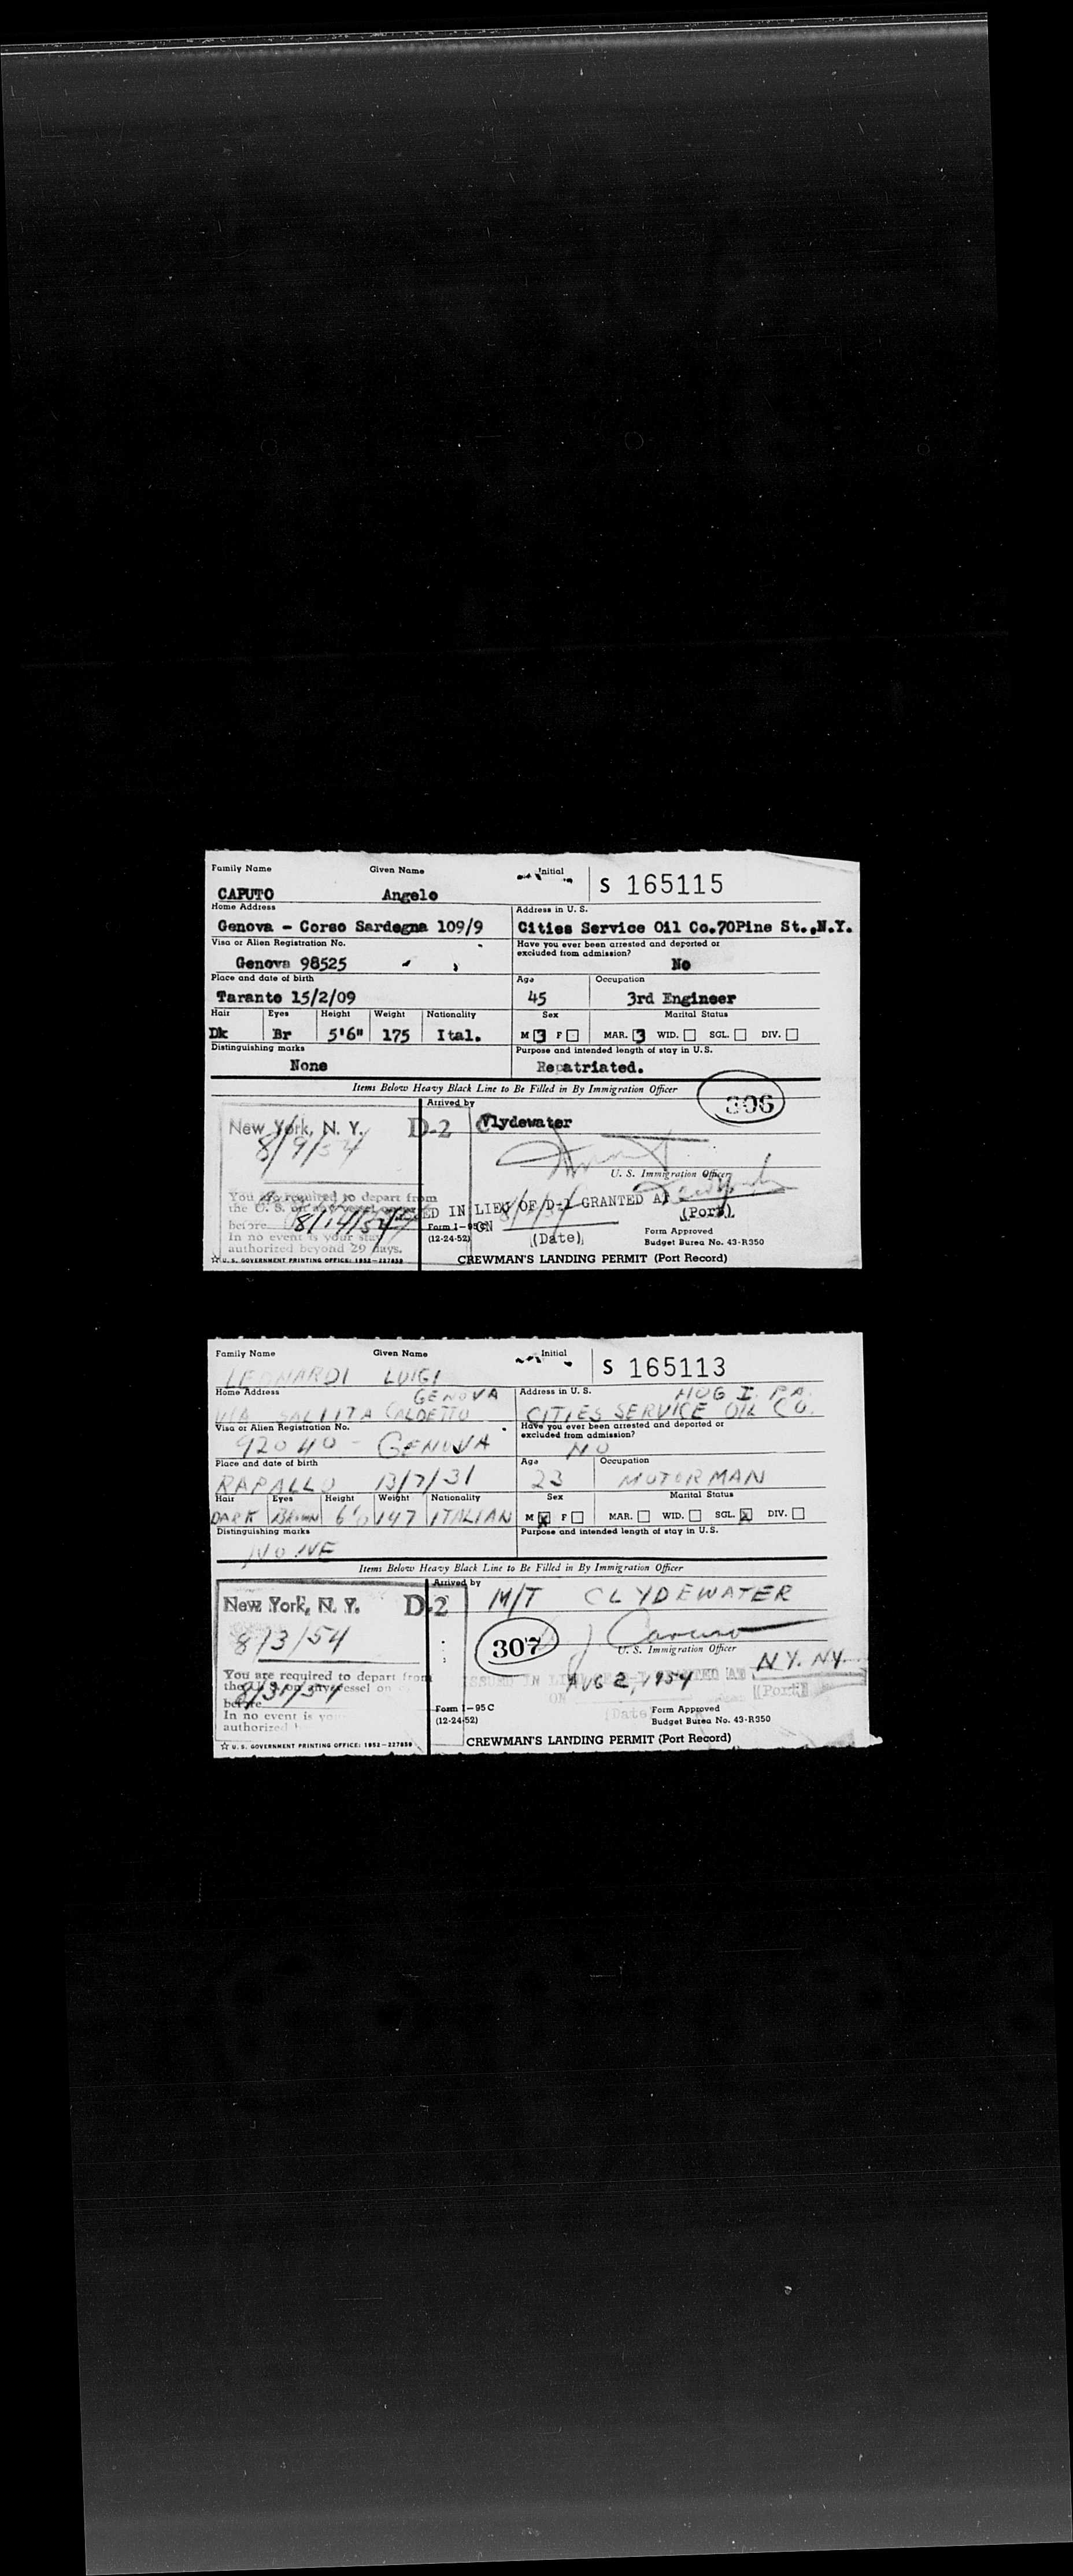 Family Name Given Name Initial S 165115
CAPUTO Angelo
Home Address Address in U. S.
Genova - Corso Sardegna 109/9 Cities Service Oil Co.70Pine St.,N.Y.
Visa or Alien Registration No. Have you ever been arrested and deported or
excluded from admission?
Genova 98525 No
Place and date of birth Age Occupation
Taranto 15/2/09 45 3rd Engineer
Hair Eyes Height Weight Nationality Sex Marital Status
Dk Br 5'6" 175 Ital. M F MAR. WID. SGL. DIV.
Distinguishing marks Purpose and intended length of stay in U.S.
None Repatriated.
Items Below Heavy Black Line to Be Filled in By Immigration Officer
306
Arrived by
New York, N. Y. D-2 Clydewater
8/9/54
U. S. Immigration Officer
You are required to depart from
the U. S. on any vessel on or
IN LIEU OF D-1 GRANTED AT
(Port)
before 8/14/54
ON
(Date)
In no event is your stay
authorized beyond 29 days.
Form I-95C
(12-24-52)
Form Approved
Budget Burea No. 43-R350
☆ U. S. GOVERNMENT PRINTING OFFICE: 1952-227858 CREWMAN'S LANDING PERMIT (Port Record)
Family Name Given Name Initial S 165113
LEONARDI LUIGI
Home Address Address in U. S.
GENOVA
VIA SALLITA CITIES SERVICE OIL CO.
Visa or Alien Registration No. Have you ever been arrested and deported or
excluded from admission?
92040 - GENOVA NO
Place and date of birth Age Occupation
RAPALLO 13/7/31 23 MOTORMAN
Hair Eyes Height Weight Nationality Sex Marital Status
DARK BROWN 147 ITALIAN M X F MAR. WID. SGL. X DIV.
Distinguishing marks Purpose and intended length of stay in U.S.
NONE
Items Below Heavy Black Line to Be Filled in By Immigration Officer
Arrived by
New York, N. Y. D-2 M/T CLYDEWATER
8/3/54
307
U. S. Immigration Officer
N.Y. N.Y.
You are required to depart from
the U. S. on any vessel on
ISSUED IN
AUG 2, 1954
AT
(Port)
before 8/31/54
ON
(Date
In no event is your
authorized
Form I-95C
(12-24-52)
Form Approved
Budget Burea No. 43-R350
☆ U. S. GOVERNMENT PRINTING OFFICE: 1952-227858 CREWMAN'S LANDING PERMIT (Port Record)